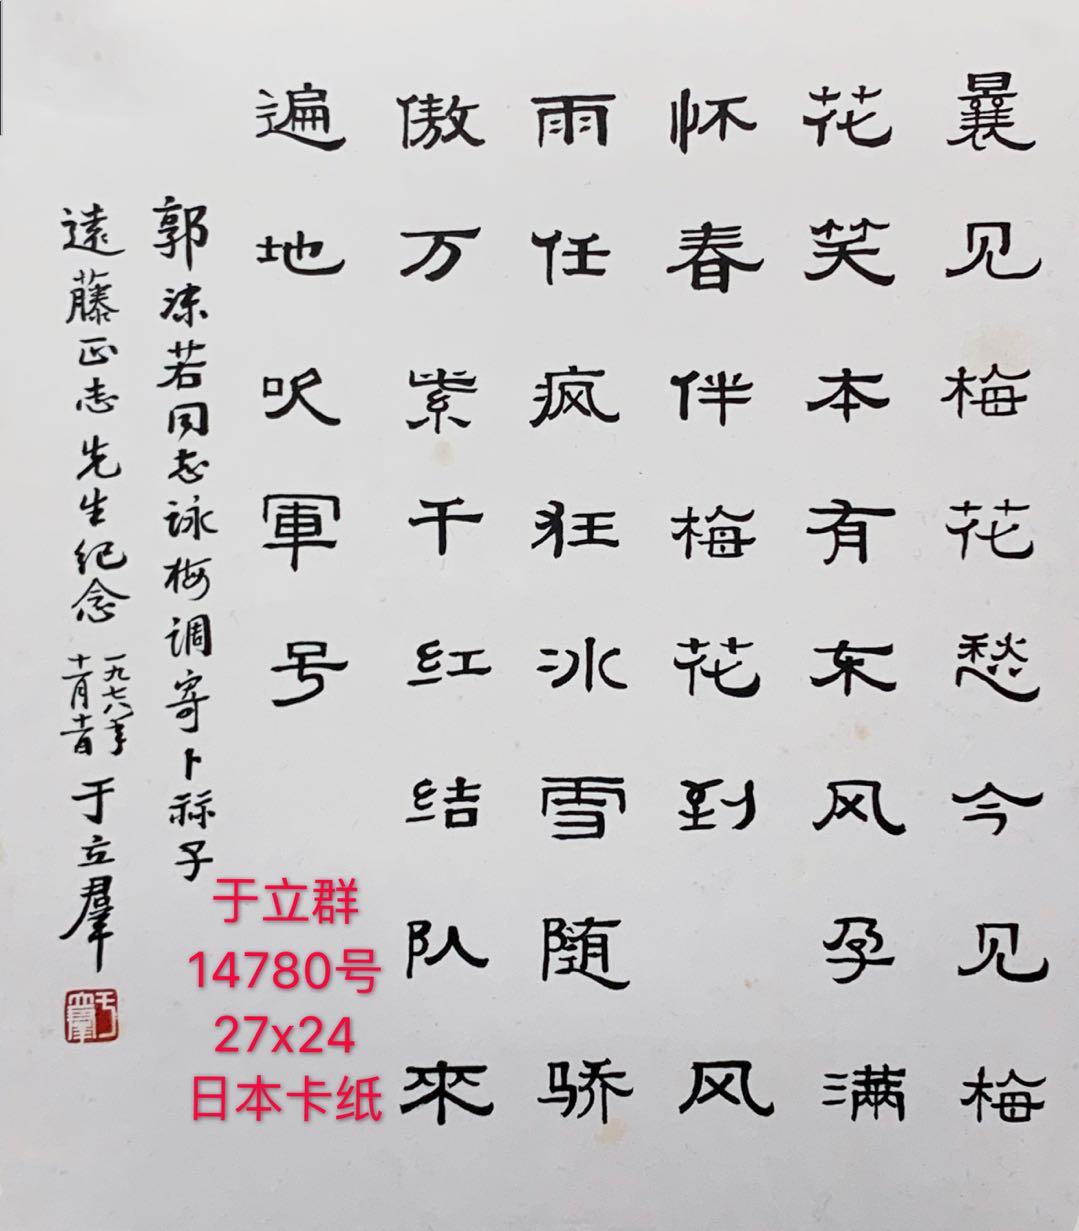 曩见梅花愁今见梅
花笑本有东风孕满
怀春伴梅花到 风
雨任疯狂冰雪随骄
傲万紫千红结队来
遍地吹軍号
郭沫若同志詠梅调寄卜祘子
遠藤正志先生纪念
一九七八年
十一月十一日
于立羣
于立群
14780号
27x24
日本卡纸